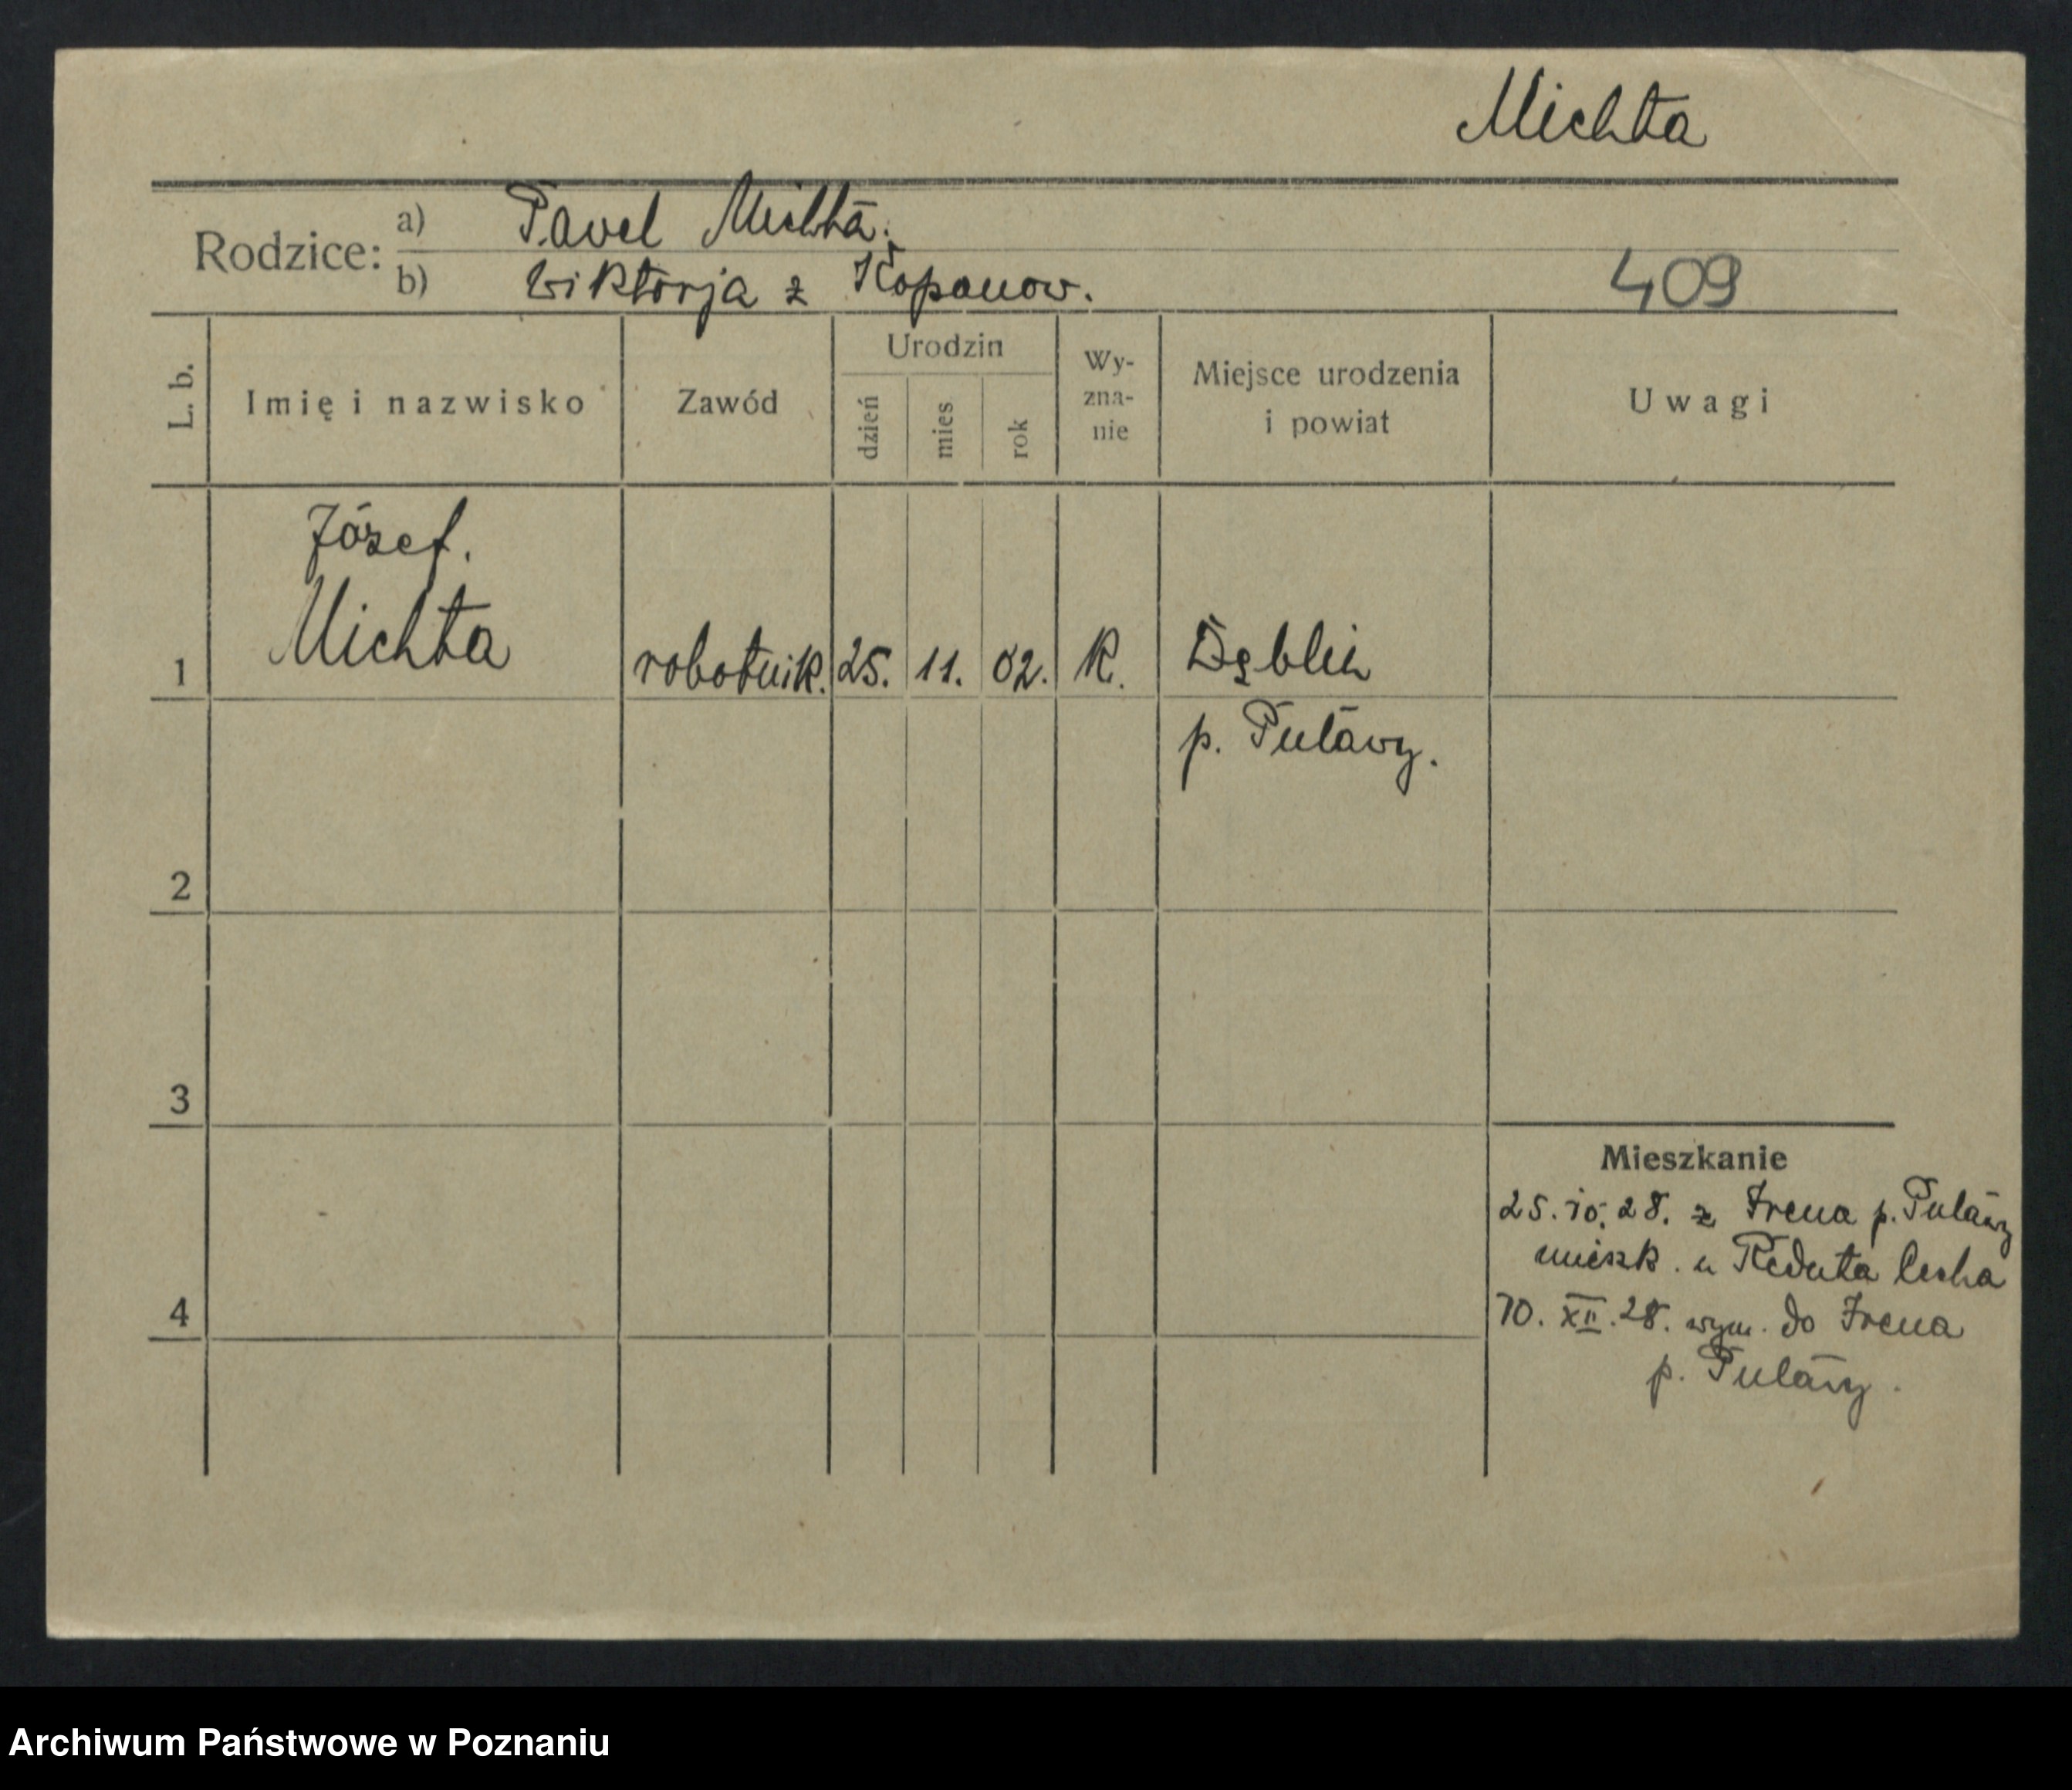 Michta
Rodzice: a) Pavel Michta.
b) Wiktorja z Kopanow.
409
L. b.
Imię i nazwisko
Zawód
Urodzin
dzień
mies
rok
Wy-
zna-
nie
Miejsce urodzenia
i powiat
Uwagi
Józef.
1 Michta robotnik. 25. 11. 02. R. Dęblin
p. Puławy.
2
3
4
Mieszkanie
25.10.28. z Irena p. Puławy
mieszk. u Reduta Lecha
10. XII. 28. wym. do Irena
p. Puławy.
Archiwum Państwowe w Poznaniu